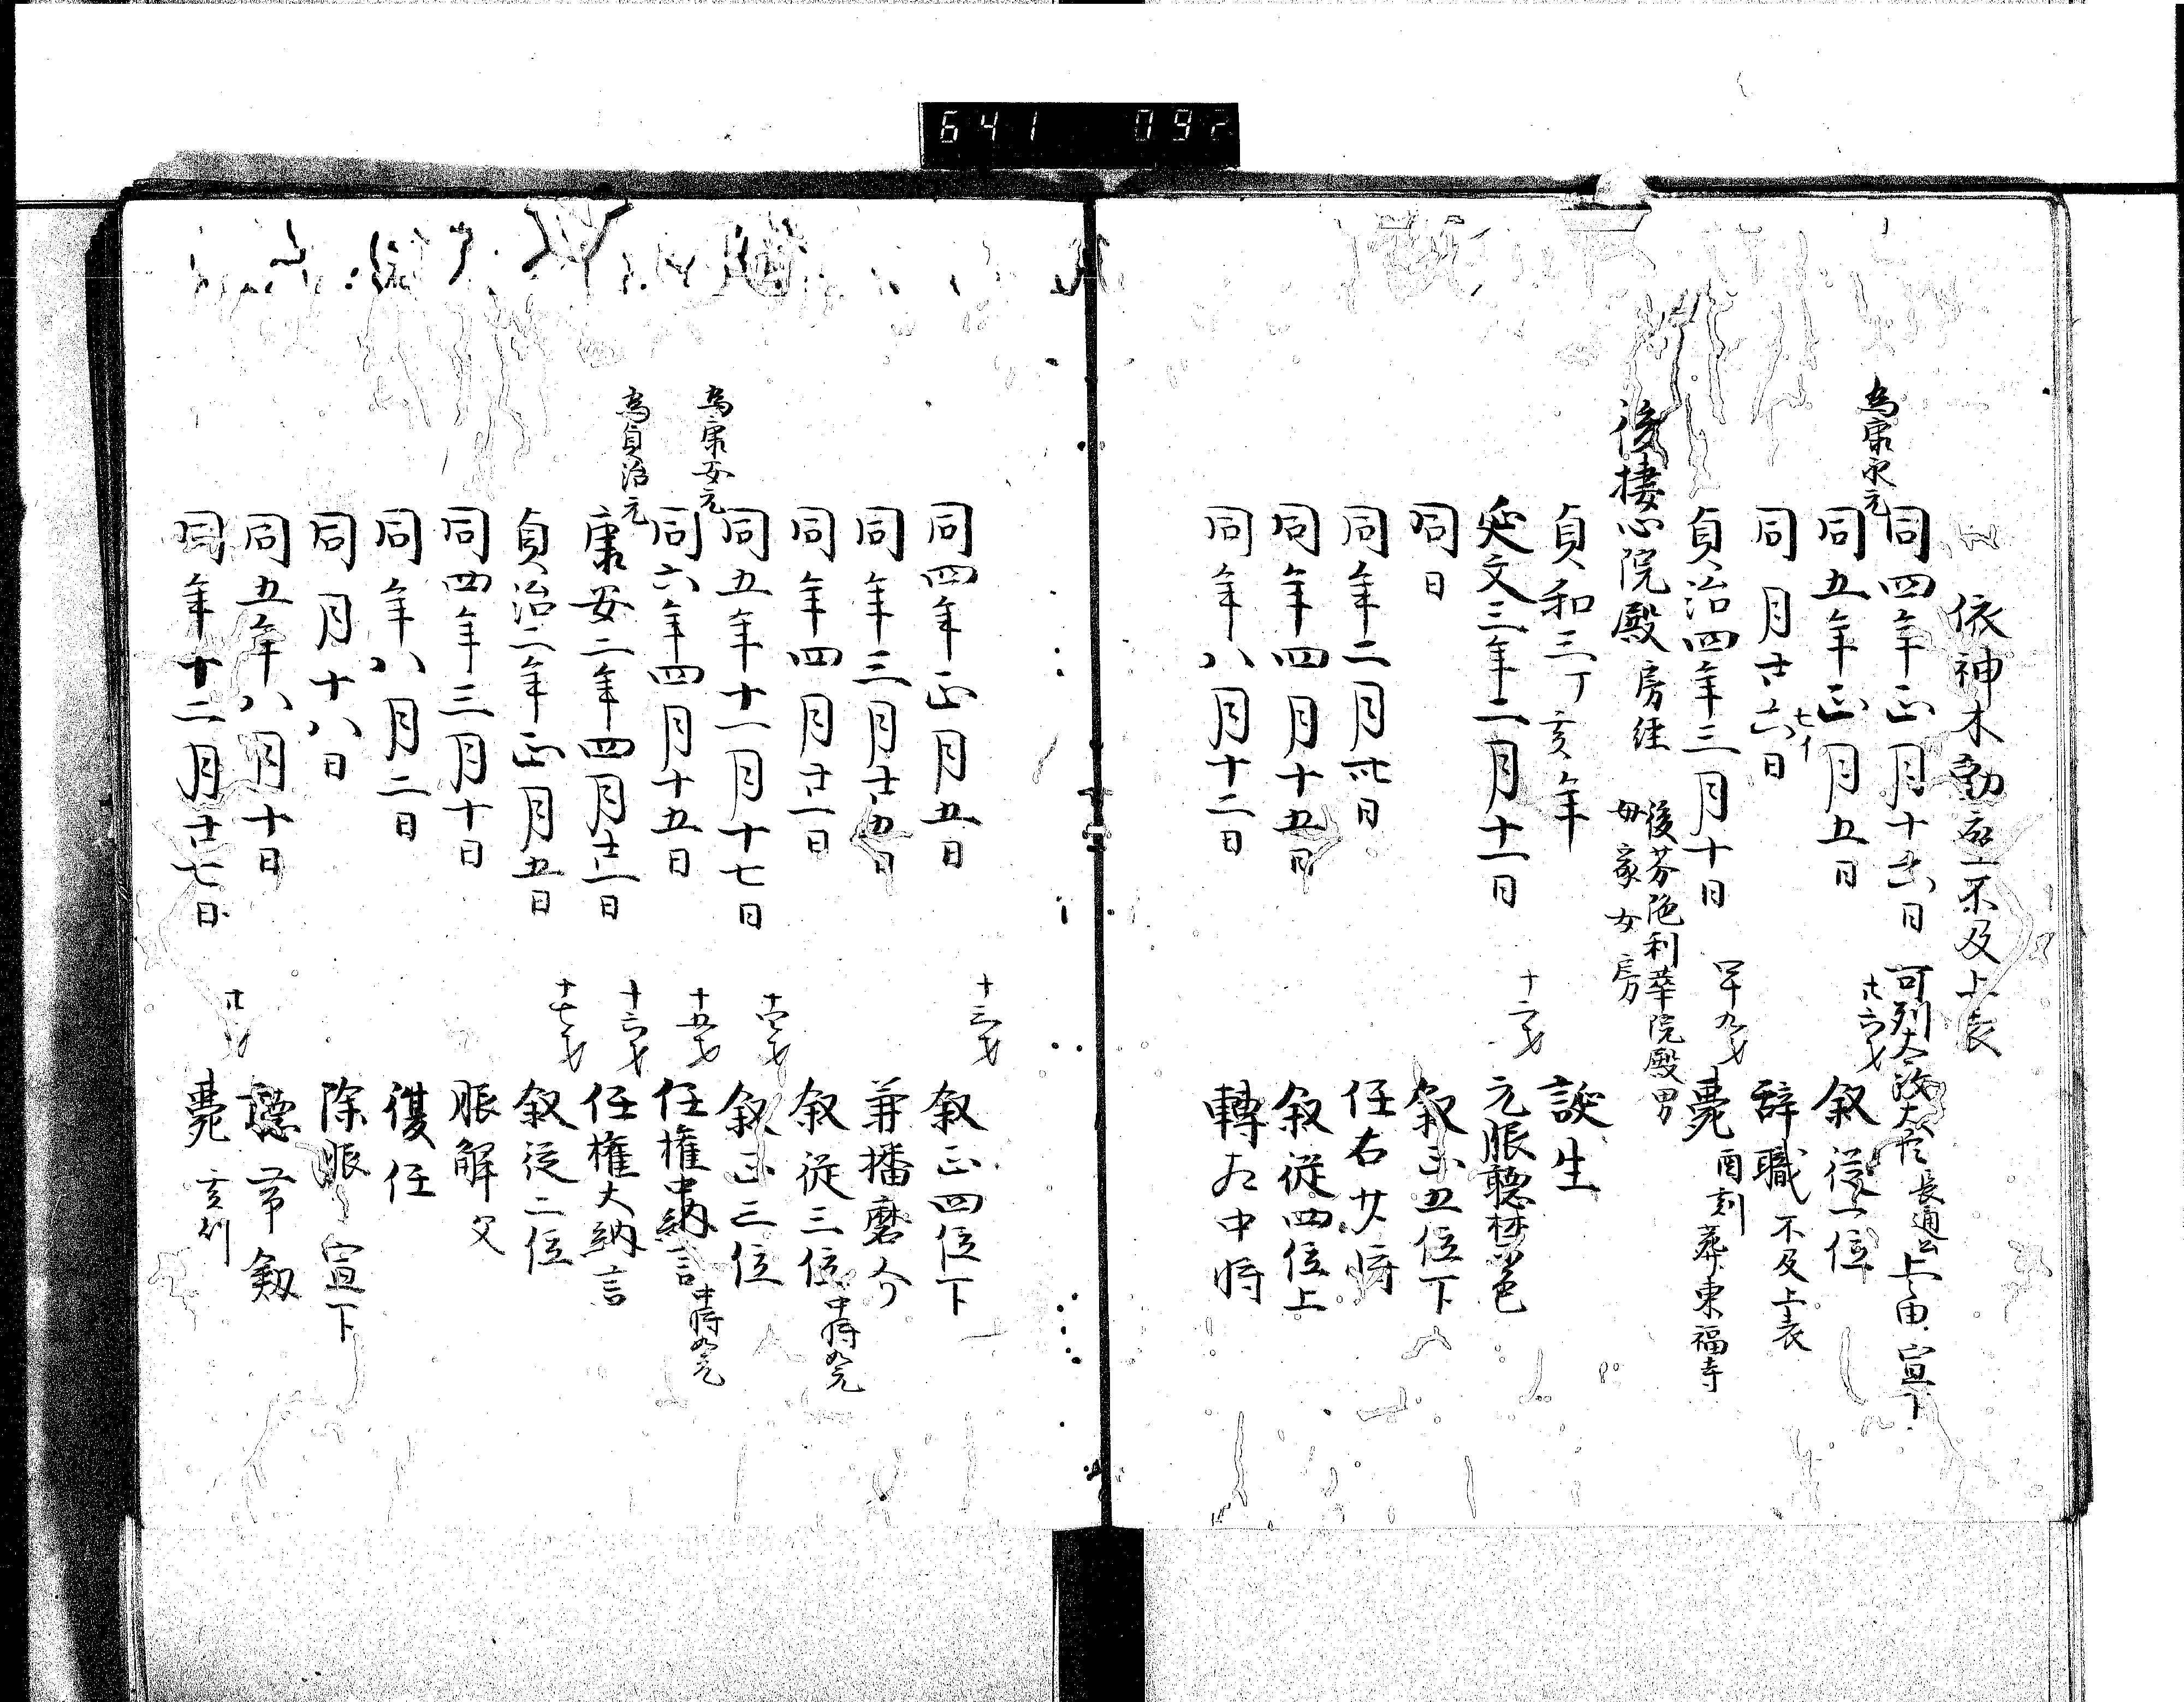 641 092
依神木動座不及上表
同四年正月十六日 可列令汝大臣 長通公上由宣下
為康永元
同五年正月五日 廿六才 叙従一位
同月廿六日 七イ 辞職 不及上表
貞治四年三月十日 四十九才 薨 酉刻 葬東福寺
後棲心院殿 房経 後芬陀利華院殿男
母家女房
貞和三丁亥年 誕生
延文三年二月十一日 十二才 元服聴禁色
同日 叙正五位下
同年二月廿日 任右少将
同年四月十五日 叙従四位上
同年八月十二日 轉左中将
同四年正月五日 十三才 叙正四位下
同年三月廿五日 兼播磨介
同年四月廿一日 叙従三位 中将如元
同五年十一月十七日 十四才 叙正三位
為康安元
同六年四月十五日 十五才 任権中納言 中将如元
為貞治元
康安二年四月廿一日 十六才 任権大納言
貞治二年正月五日 十七才 叙従二位
同四年三月十日 服解 父
同年八月二日 復任
同月十八日 除服宣下
同五年八月十日 廿才 聴帯剱
同年十二月廿七日 薨 亥刻